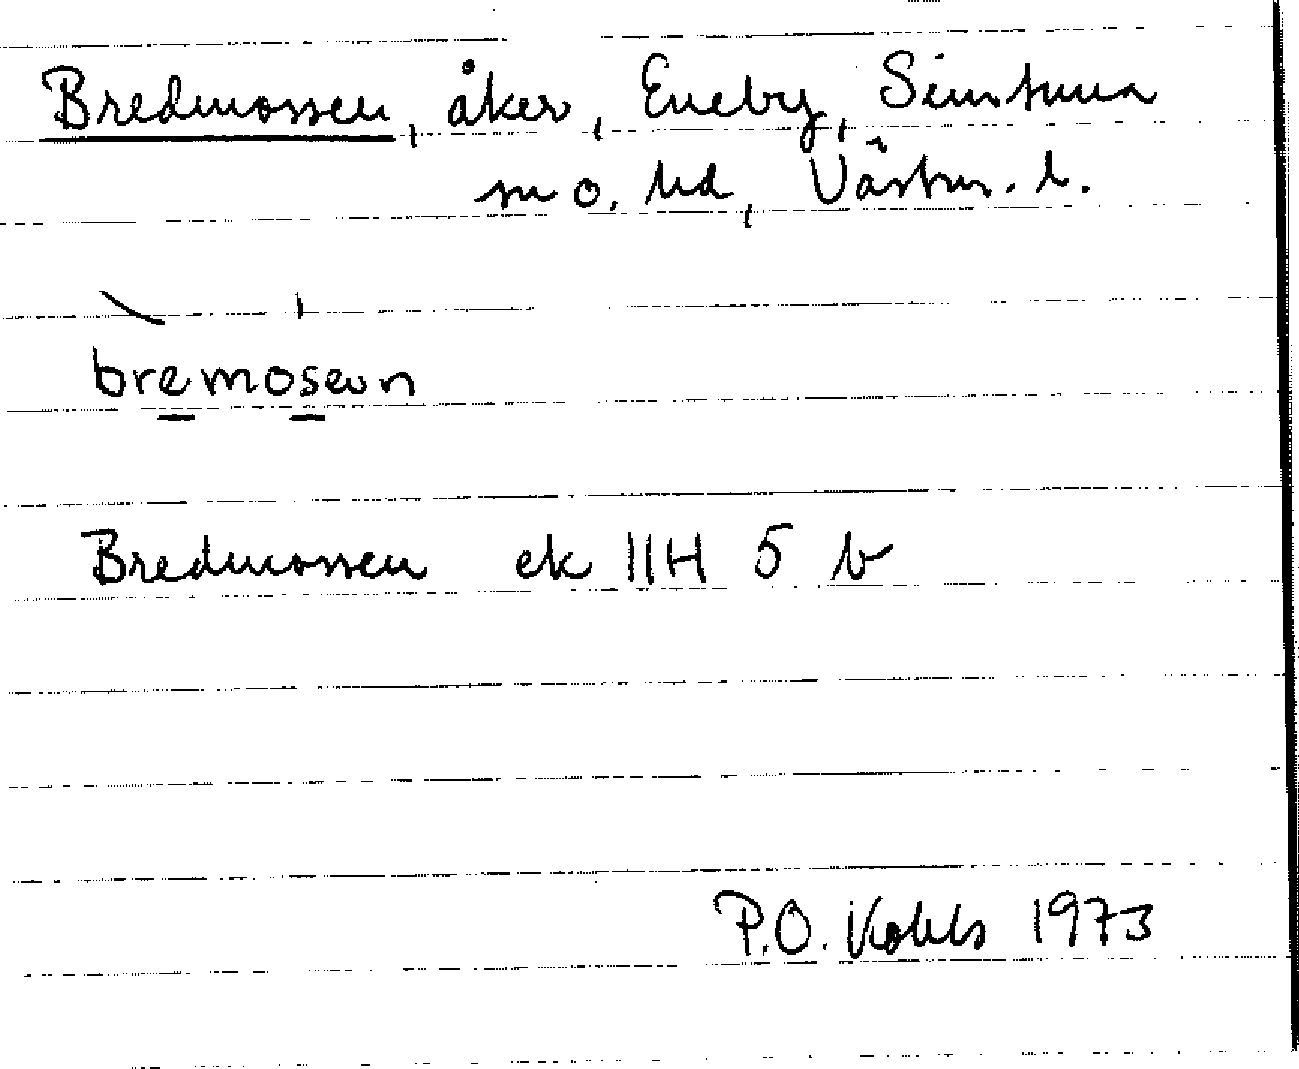 Bredmossen, åker, Eneby, Simtuna
sn o. hd, Västm. l.
bremosen
Bredmossen ek 11H 5 b
P.O. 1973